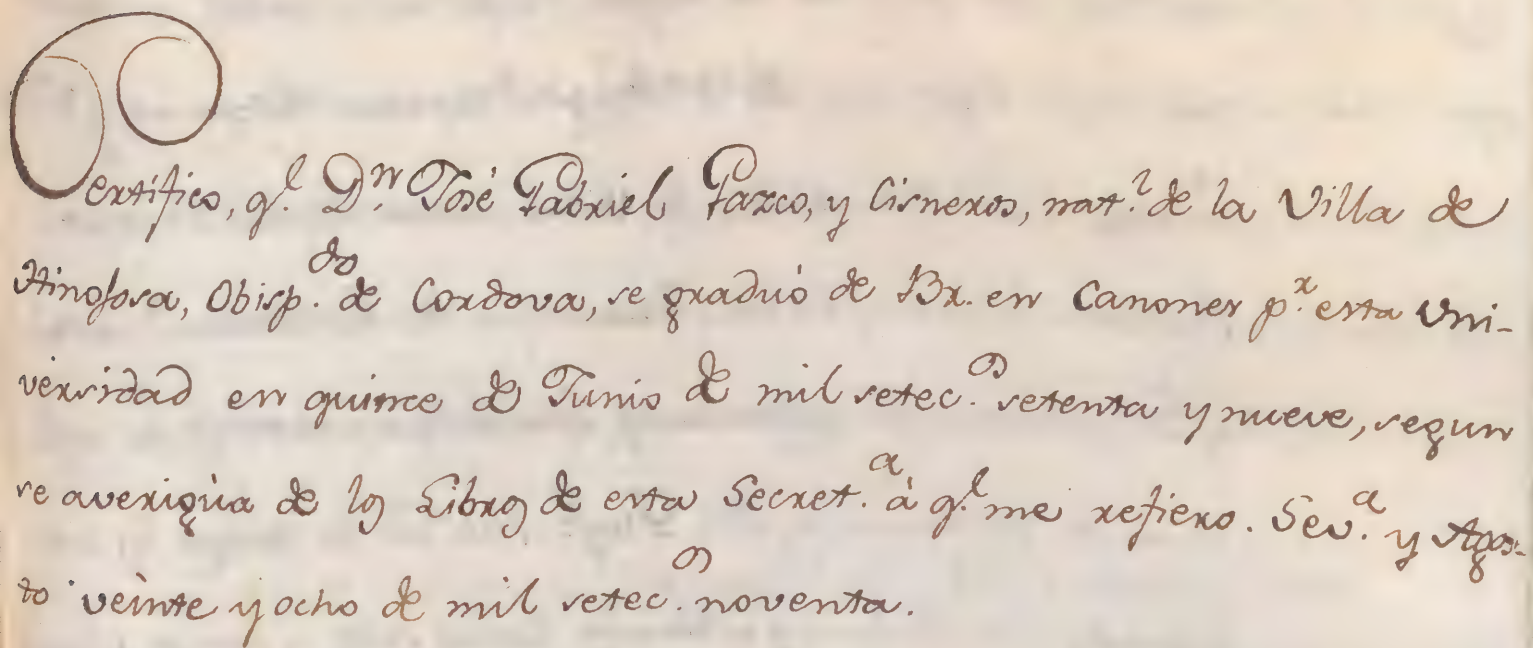 Certifico, q.^e D.^n José Gabriel Garzo, y Cisneros, nat.^l de la Villa de
Hinojosa, Obisp.^do de Cordova, se graduó de Br. en Canones p.^r esta Uni-
versidad en quince de Junio de mil setec.^os setenta y nueve, segun
se averigùa de los Libros de esta Secret.^a à q.^e me refiero. Sev.^a y Agos-
to veinte y ocho de mil setec.^os noventa.